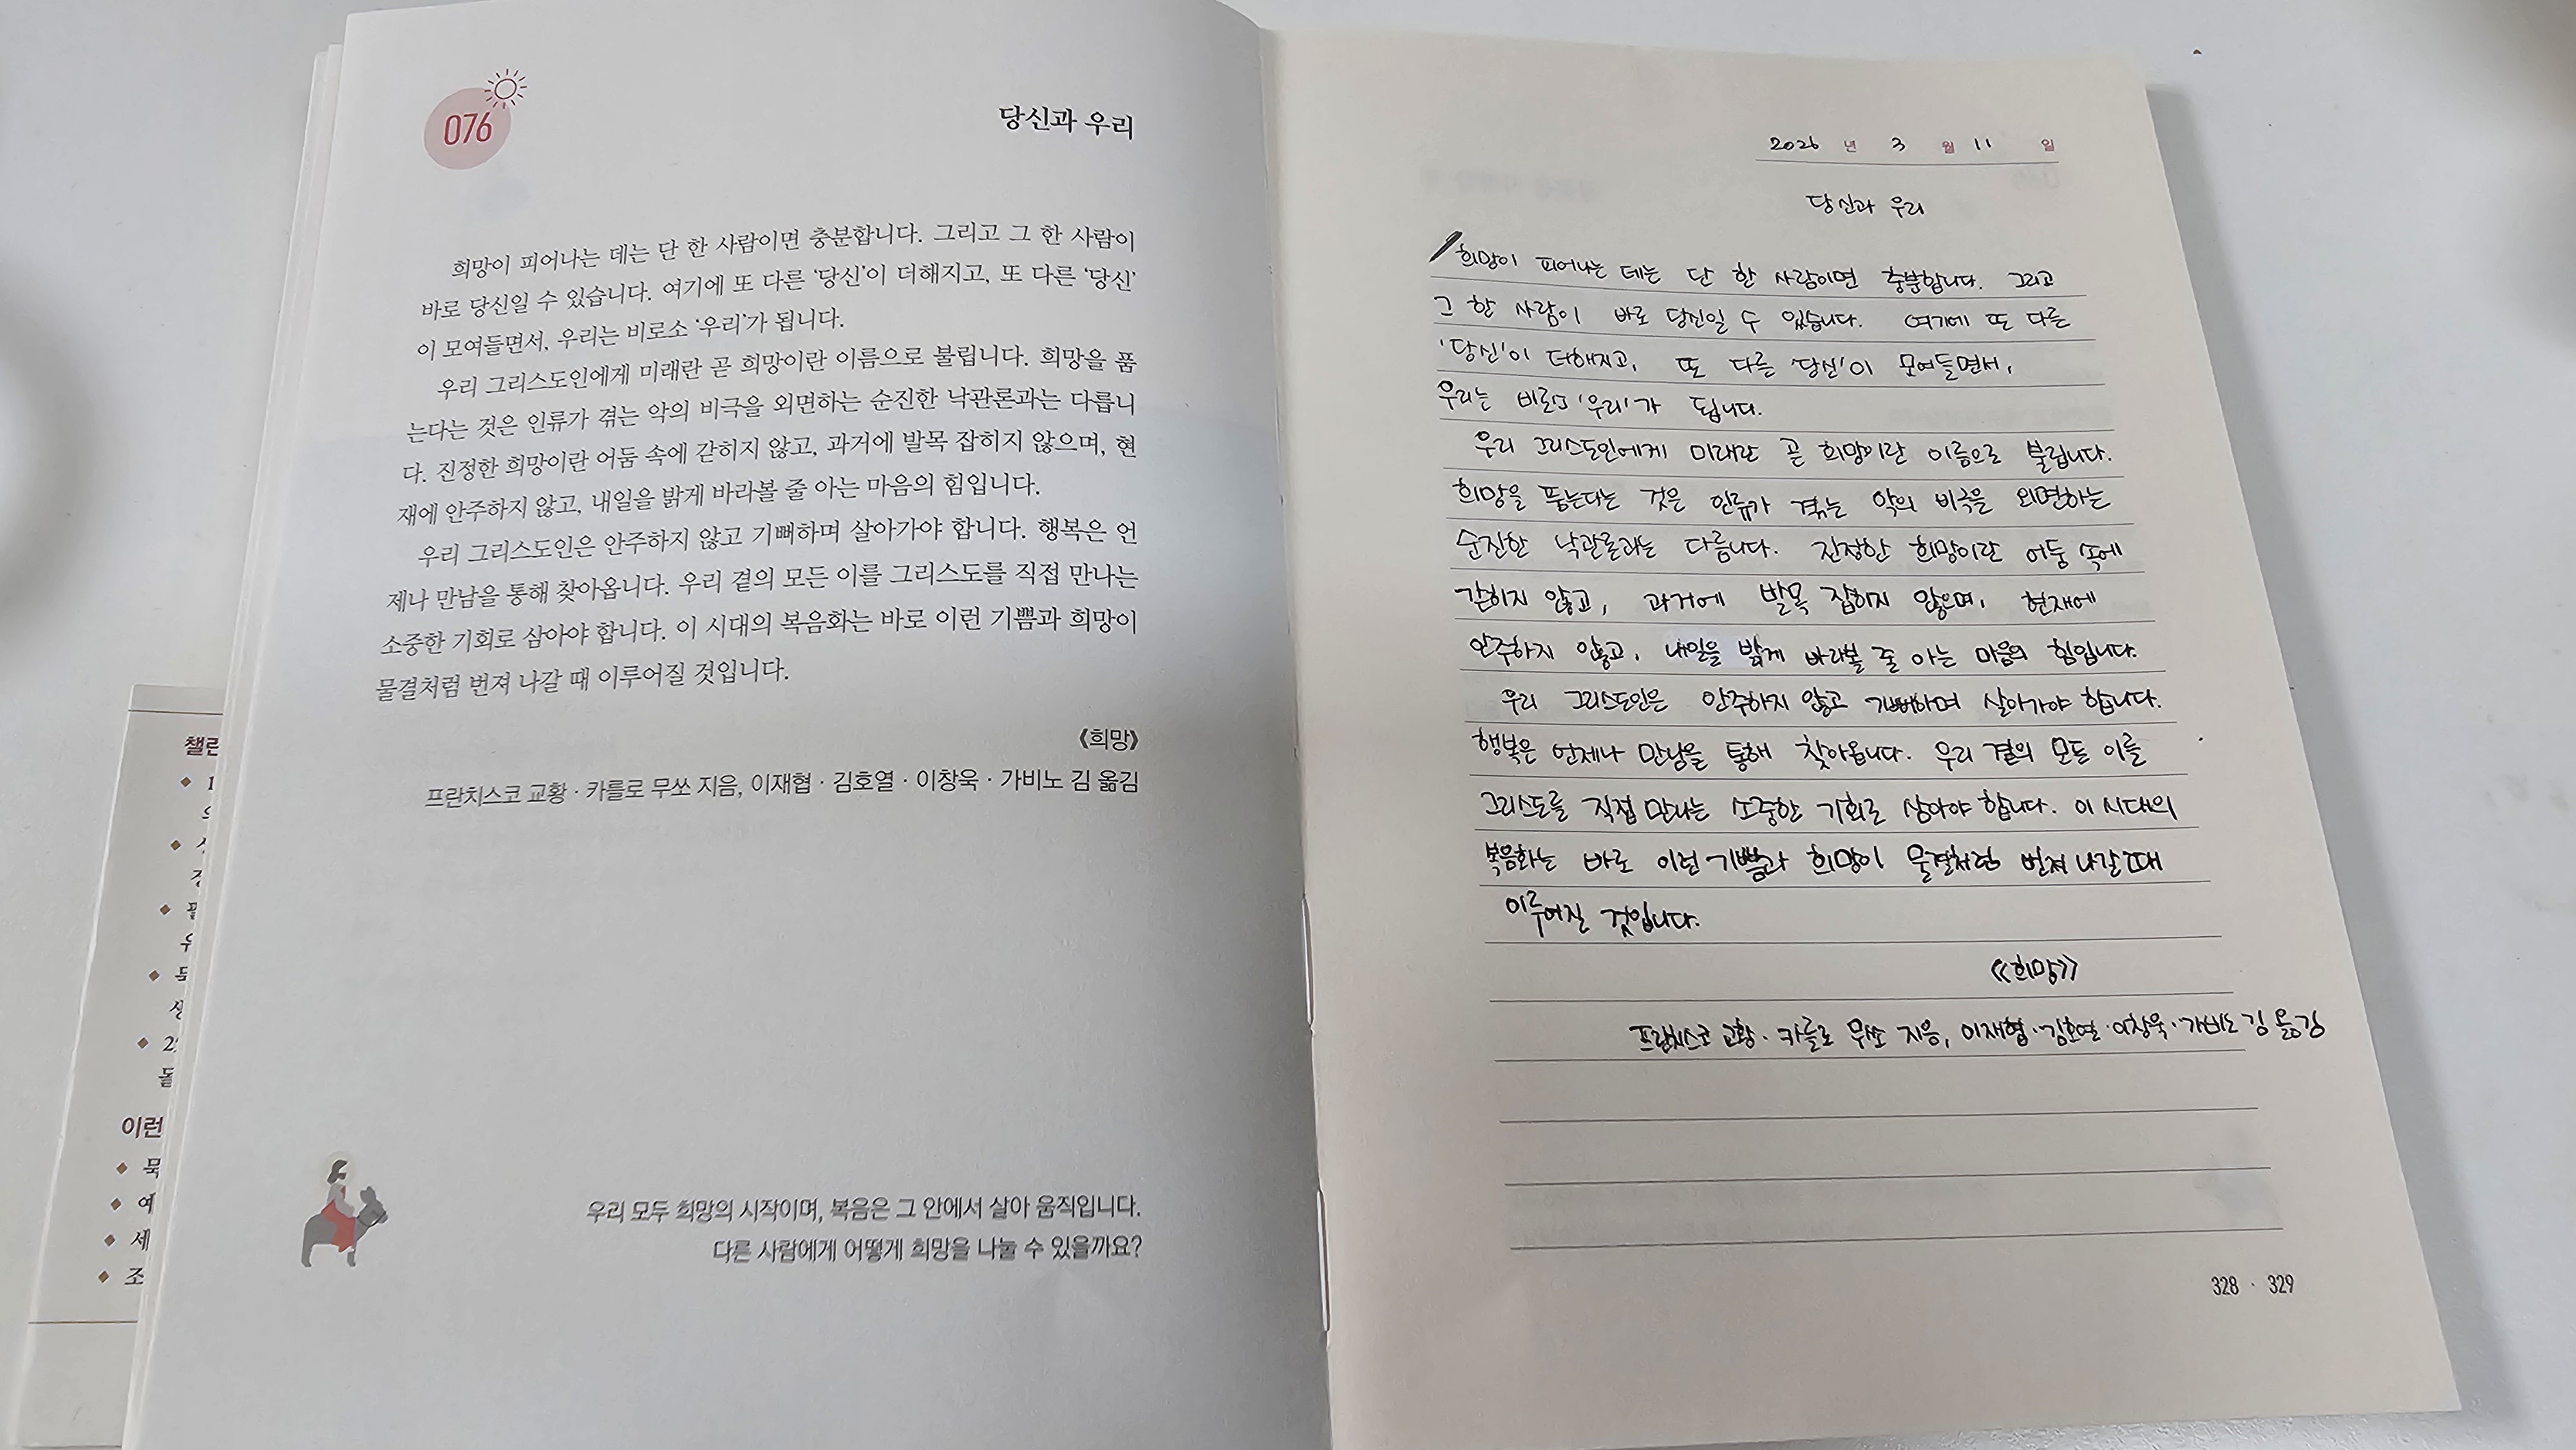 076
당신과 우리
희망이 피어나는 데는 단 한 사람이면 충분합니다. 그리고 그 한 사람이
바로 당신일 수 있습니다. 여기에 또 다른 ‘당신’이 더해지고, 또 다른 ‘당신’
이 모여들면서, 우리는 비로소 ‘우리’가 됩니다.
우리 그리스도인에게 미래란 곧 희망이란 이름으로 불립니다. 희망을 품
는다는 것은 인류가 겪는 악의 비극을 외면하는 순진한 낙관론과는 다릅니
다. 진정한 희망이란 어둠 속에 갇히지 않고, 과거에 발목 잡히지 않으며, 현
재에 안주하지 않고, 내일을 밝게 바라볼 줄 아는 마음의 힘입니다.
우리 그리스도인은 안주하지 않고 기뻐하며 살아가야 합니다. 행복은 언
제나 만남을 통해 찾아옵니다. 우리 곁의 모든 이를 그리스도를 직접 만나는
소중한 기회로 삼아야 합니다. 이 시대의 복음화는 바로 이런 기쁨과 희망이
물결처럼 번져 나갈 때 이루어질 것입니다.
《희망》
프란치스코 교황 · 카를로 무쏘 지음, 이재협 · 김호열 · 이창욱 · 가비노 김 옮김
우리 모두 희망의 시작이며, 복음은 그 안에서 살아 움직입니다.
다른 사람에게 어떻게 희망을 나눌 수 있을까요?
챌린
이런
묵
예
세
조
2026 년 3 월 11 일
당신과 우리
희망이 피어나는 데는 단 한 사람이면 충분합니다. 그리고
그 한 사람이 바로 당신일 수 있습니다. 여기에 또 다른
'당신'이 더해지고, 또 다른 '당신'이 모여들면서,
우리는 비로소 '우리'가 됩니다.
우리 그리스도인에게 미래란 곧 희망이란 이름으로 불립니다.
희망을 품는다는 것은 인류가 겪는 악의 비극을 외면하는
순진한 낙관론과는 다릅니다. 진정한 희망이란 어둠 속에
갇히지 않고, 과거에 발목 잡히지 않으며, 현재에
안주하지 않고, 내일을 밝게 바라볼 줄 아는 마음의 힘입니다.
우리 그리스도인은 안주하지 않고 기뻐하며 살아가야 합니다.
행복은 언제나 만남을 통해 찾아옵니다. 우리 곁의 모든 이를
그리스도를 직접 만나는 소중한 기회로 삼아야 합니다. 이 시대의
복음화는 바로 이런 기쁨과 희망이 물결처럼 번져 나갈 때
이루어질 것입니다.
《희망》
프란치스코 교황 · 카를로 무쏘 지음, 이재협 · 김호열 · 이창욱 · 가비노 김 옮김
328 · 329